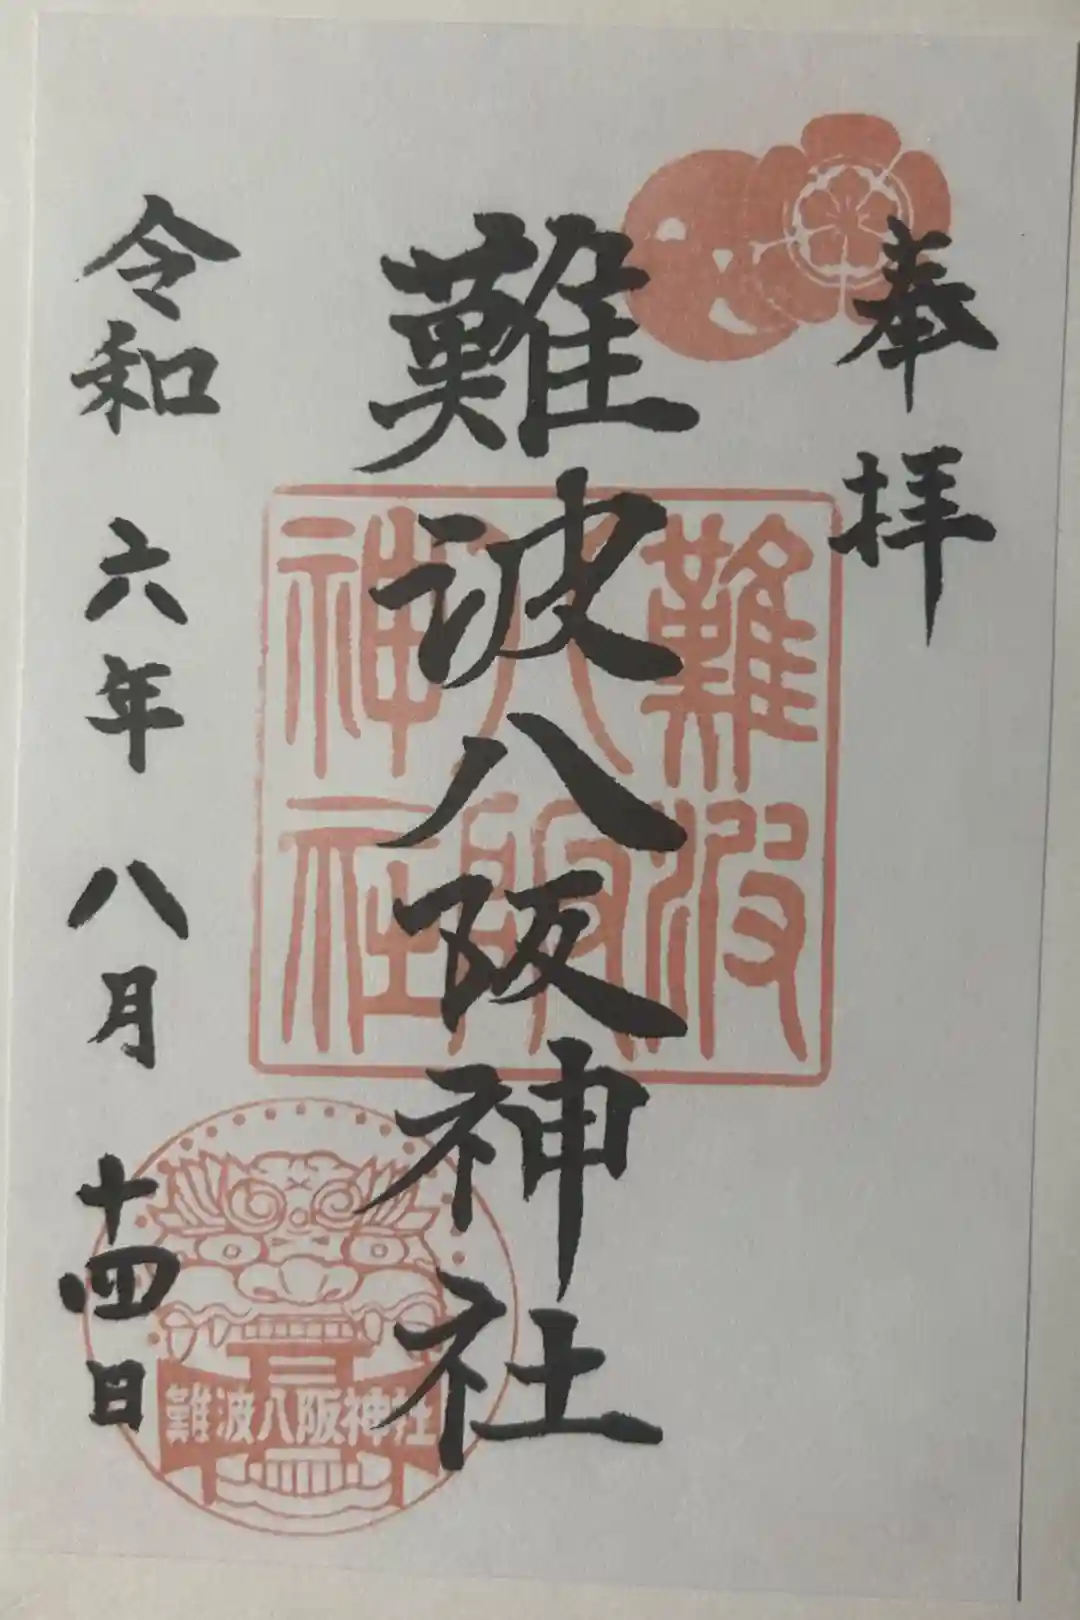 奉拝
難波八阪神社
難波
八阪
神社
難波八阪神社
令和六年八月十四日